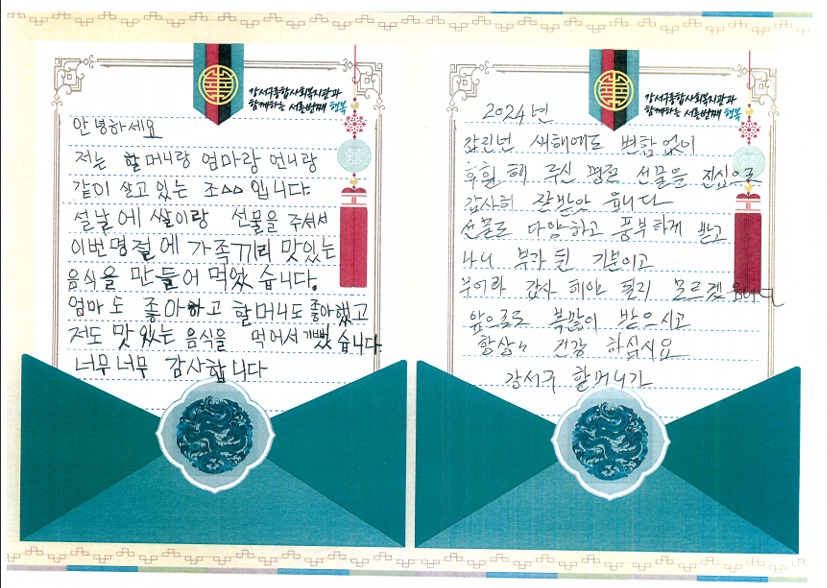 강서구종합사회복지관과
함께하는 서른번째 행복
안녕하세요
저는 할머니랑 엄마랑 언니랑
같이 살고 있는 조△△입니다
설날에 쌀이랑 선물을 주셔서
이번명절에 가족끼리 맛있는
음식을 만들어 먹었습니다.
엄마도 좋아하고 할머니도 좋아했고
저도 맛있는 음식을 먹어서 기뻤습니다.
너무너무 감사합니다
강서구종합사회복지관과
함께하는 서른번째 행복
2024년
새해에도 변함없이
후원 해 주신 명절 선물을 진심으로
감사히 잘받았읍니다
선물도 다양하고 풍부하게 받고
나니 부자 된 기분이고
감사 해야 될지 모르겠읍니다
앞으로도 복많이 받으시고
항상 건강 하십시요
강서구 할머니가